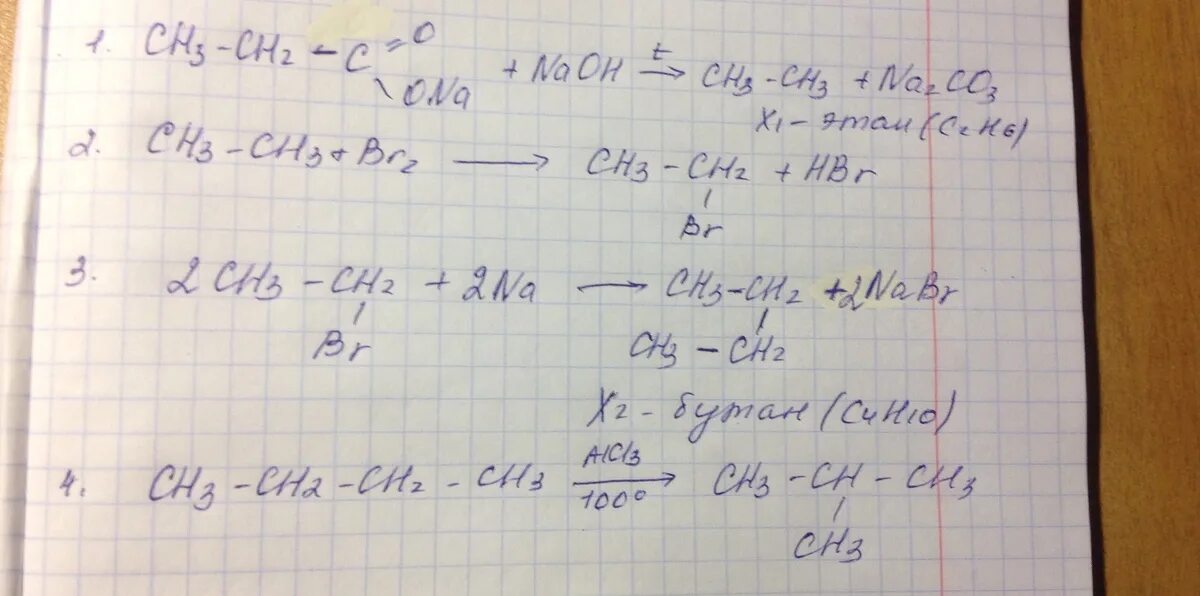 1. CH3 – CH2 – C = O
\ ONa + NaOH –t→ CH3 – CH3 + Na2CO3
X1 – этан (C2H6)
2. CH3 – CH3 + Br2 ⟶ CH3 – CH2 + HBr
|
Br
3. 2CH3 – CH2 + 2Na ⟶ CH3 – CH2 + 2NaBr
| |
Br CH3 – CH2
X2 – бутан (C4H10)
AlCl3
4. CH3 – CH2 – CH2 – CH3 ⟶ CH3 – CH – CH3
100° |
CH3